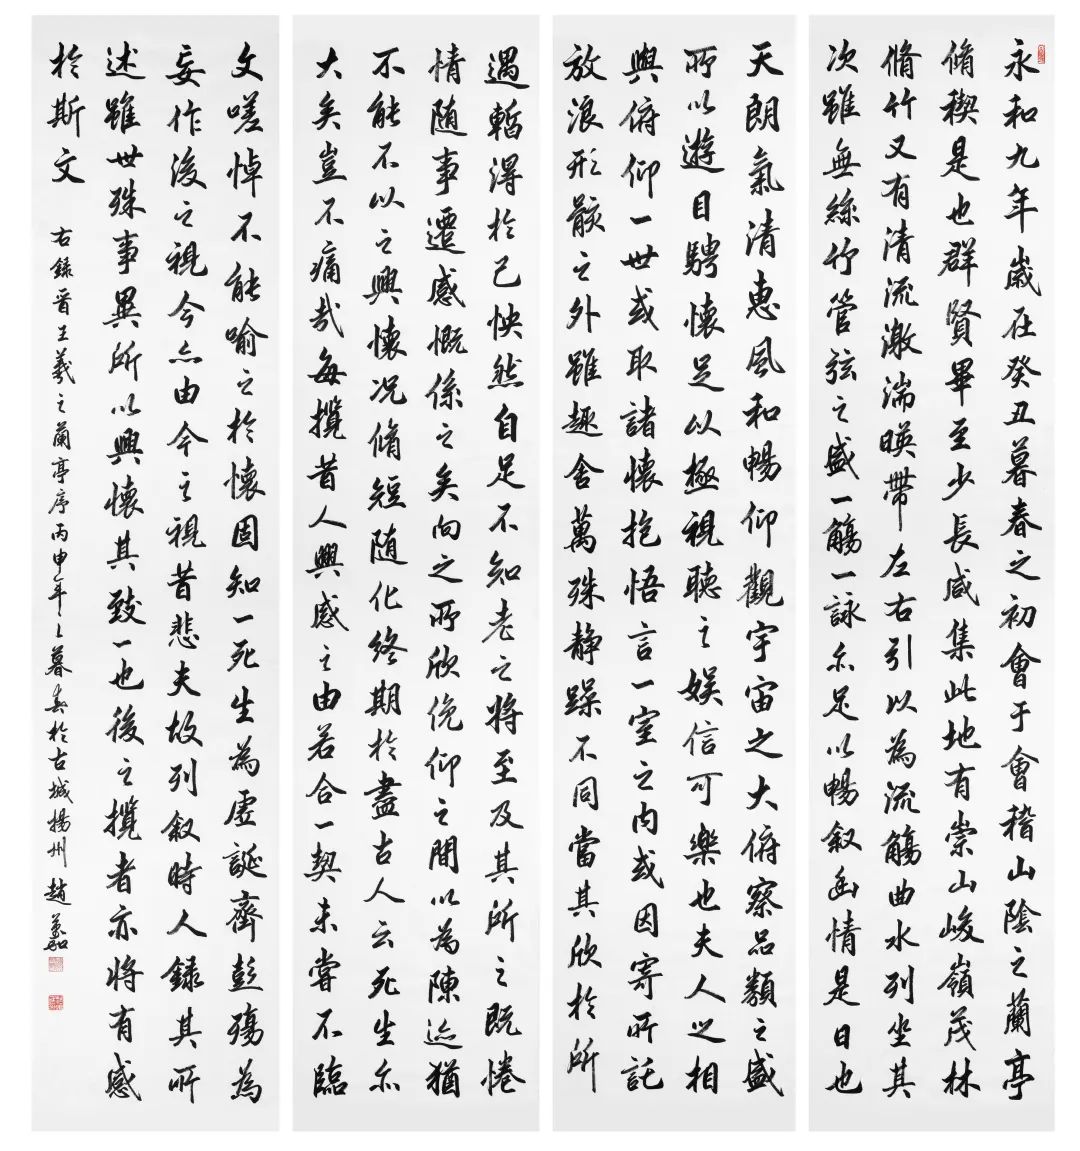 永和九年歲在癸丑暮春之初會于會稽山陰之蘭亭
脩稧是也群賢畢至少長咸集此地有崇山峻嶺茂林
脩竹又有清流激湍暎帶左右引以為流觴曲水列坐其
次雖無絲竹管弦之盛一觴一詠亦足以暢叙幽情是日也
天朗氣清惠風和暢仰觀宇宙之大俯察品類之盛
所以遊目騁懷足以極視聽之娱信可樂也夫人之相
與俯仰一世或取諸懷抱悟言一室之內或因寄所託
放浪形骸之外雖趣舍萬殊静躁不同當其欣於所
遇暫得於己怏然自足不知老之將至及其所之既惓
情随事遷感慨係之矣向之所欣俛仰之間以為陳迹猶
不能不以之興懷况脩短随化終期於盡古人云死生亦
大矣豈不痛哉每攬昔人興感之由若合一契未嘗不臨
文嗟悼不能喻之於懷固知一死生為虛誕齊彭殤為
妄作後之視今亦由今之視昔悲夫故列叙時人録其所
述雖世殊事異所以興懷其致一也後之攬者亦將有感
於斯文
右録晋王羲之蘭亭序丙申年之暮春於古城揚州趙